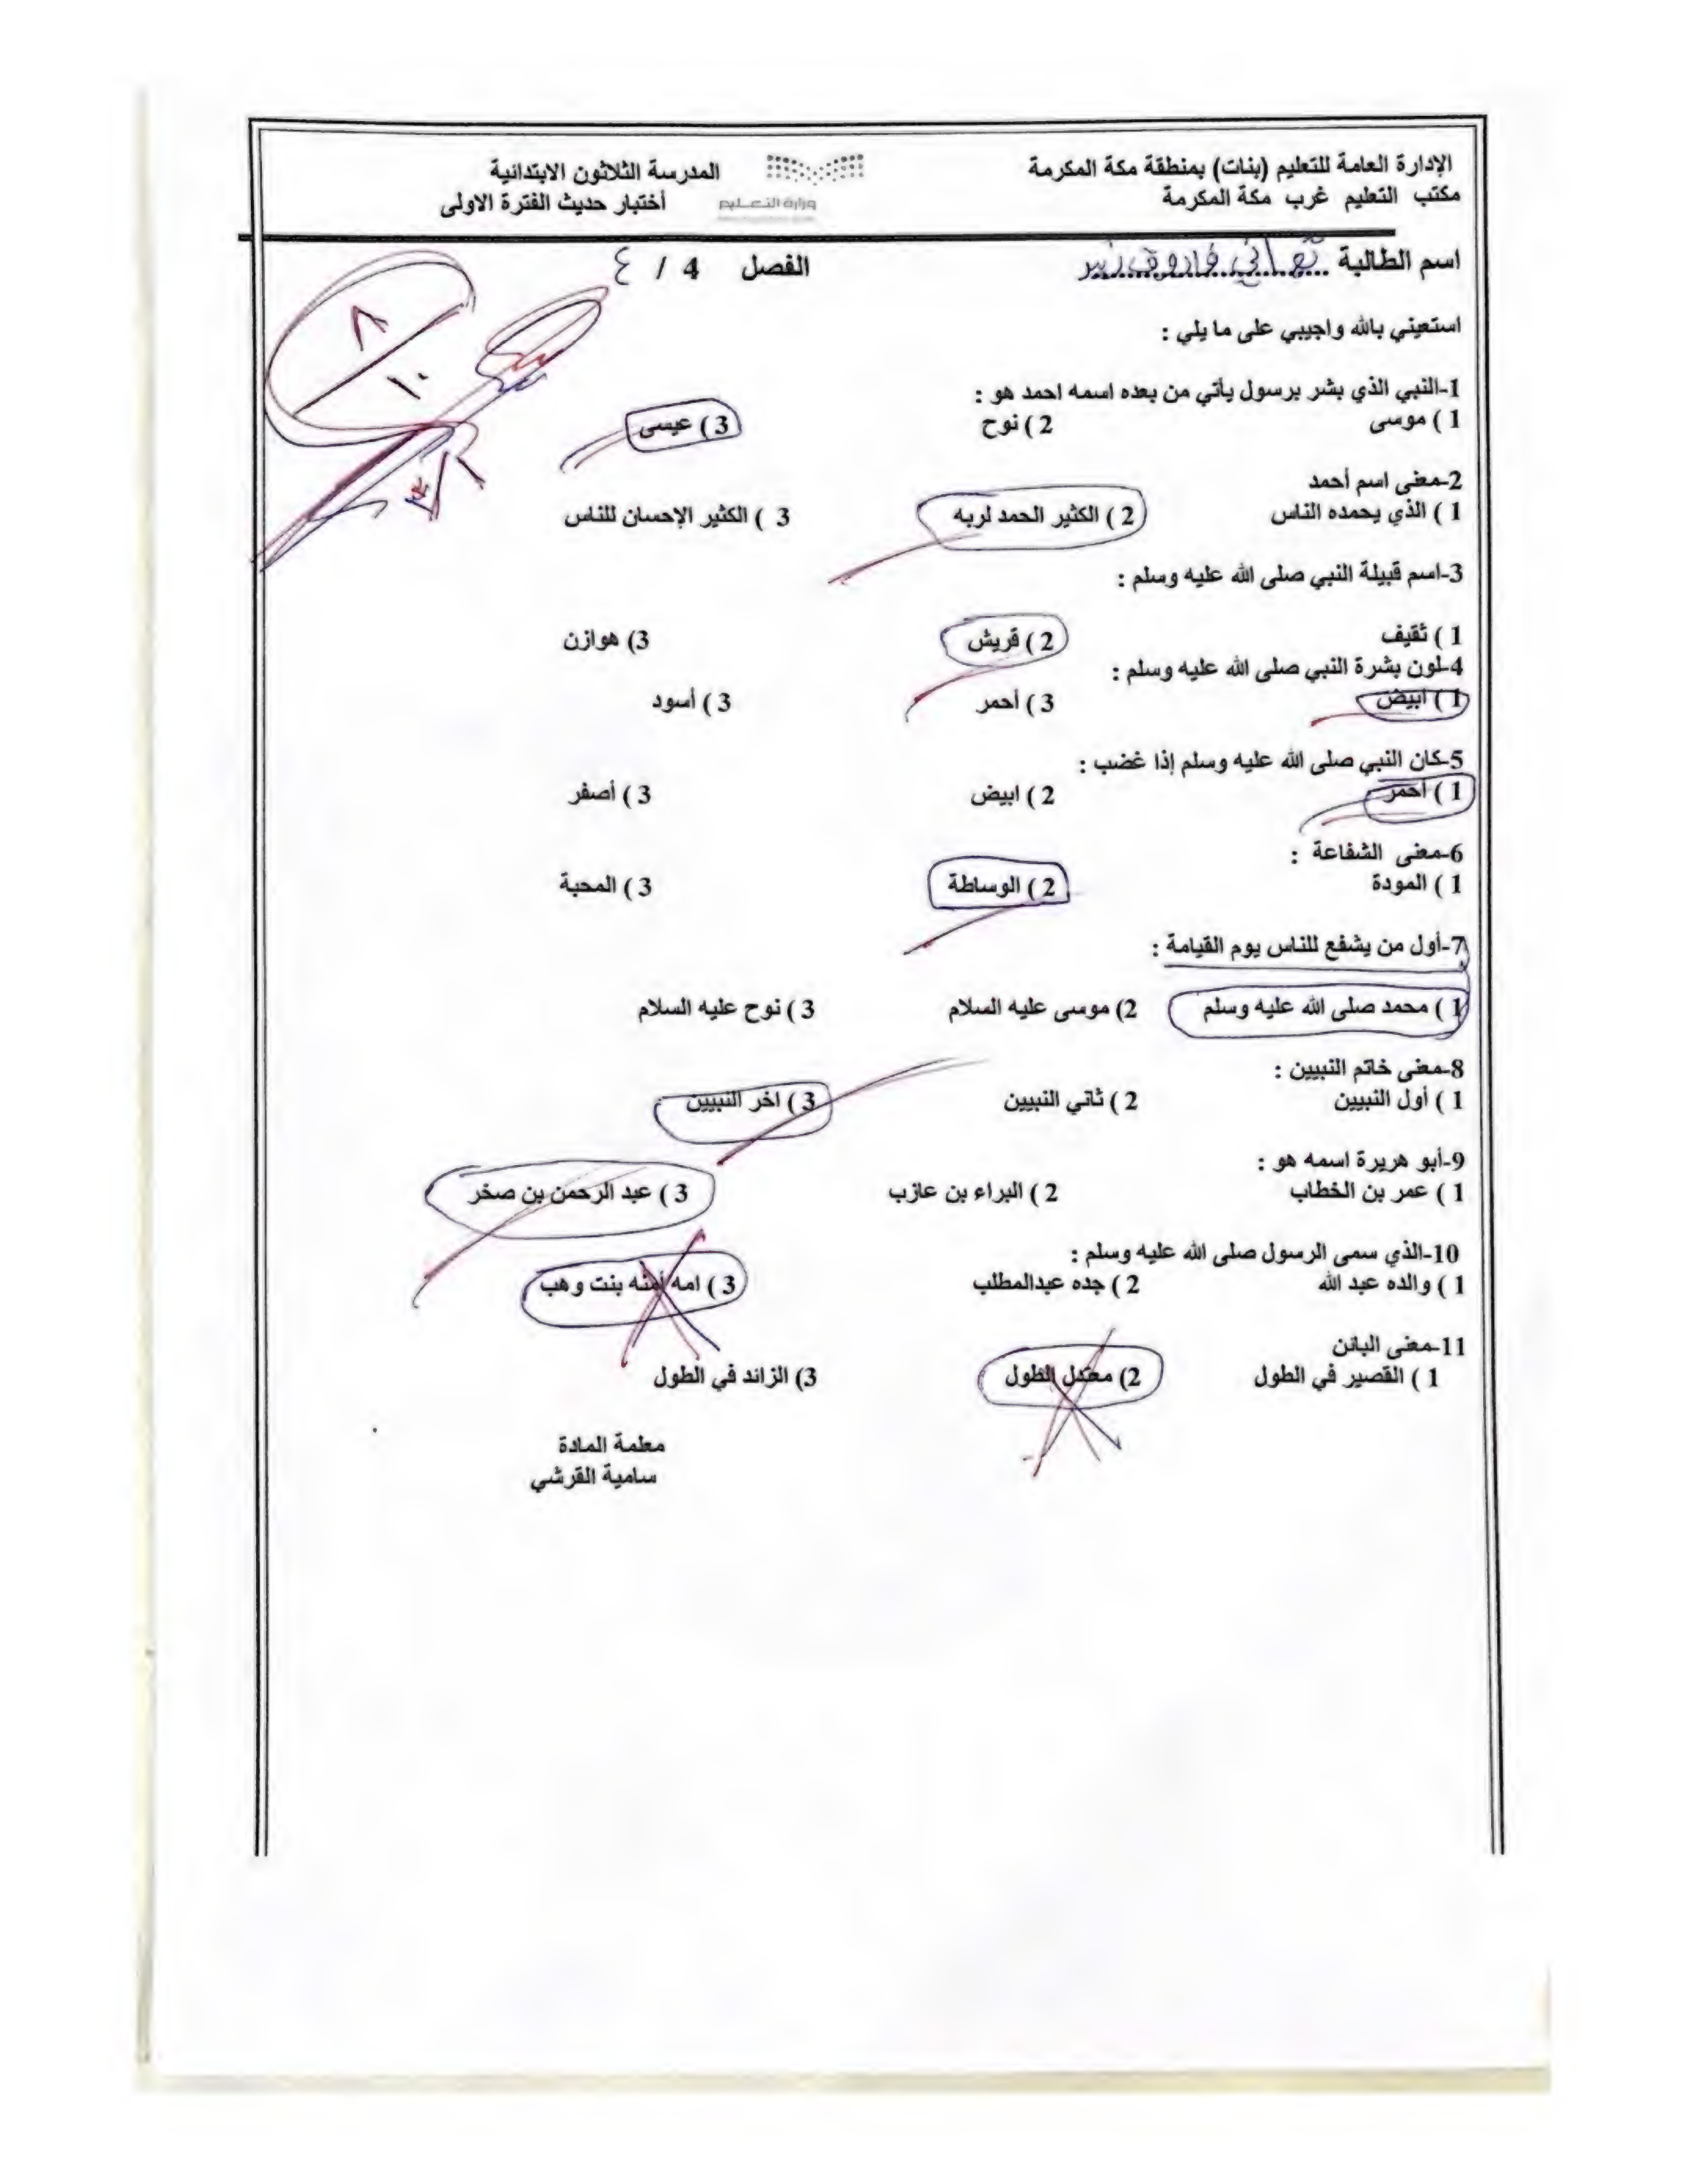 الإدارة العامة للتعليم (بنات) بمنطقة مكة المكرمة
مكتب التعليم غرب مكة المكرمة
وزارة التعليم
المدرسة الثلاثون الابتدائية
أختبار حديث الفترة الاولى
اسم الطالبة تهاني فاروق زبير الفصل 4 / ٤
٨
١٠
استعيني بالله واجيبي على ما يلي :
1-النبي الذي بشر برسول يأتي من بعده اسمه احمد هو :
1 ) موسى 2 ) نوح 3 ) عيسى
2-معنى اسم أحمد
1 ) الذي يحمده الناس 2 ) الكثير الحمد لربه 3 ) الكثير الإحسان للناس
3-اسم قبيلة النبي صلى الله عليه وسلم :
1 ) ثقيف 2 ) قريش 3) هوازن
4-لون بشرة النبي صلى الله عليه وسلم :
1 ) ابيض 3 ) أحمر 3 ) أسود
5-كان النبي صلى الله عليه وسلم إذا غضب :
1 ) أحمر 2 ) ابيض 3 ) أصفر
6-معنى الشفاعة :
1 ) المودة 2 ) الوساطة 3 ) المحبة
7-أول من يشفع للناس يوم القيامة :
1 ) محمد صلى الله عليه وسلم 2) موسى عليه السلام 3 ) نوح عليه السلام
8-معنى خاتم النبيين :
1 ) أول النبيين 2 ) ثاني النبيين 3 ) اخر النبيين
9-أبو هريرة اسمه هو :
1 ) عمر بن الخطاب 2 ) البراء بن عازب 3 ) عبد الرحمن بن صخر
10-الذي سمى الرسول صلى الله عليه وسلم :
1 ) والده عبد الله 2 ) جده عبدالمطلب 3 ) امه أمنه بنت وهب
11-معنى البائن
1 ) القصير في الطول 2) معتدل الطول 3) الزائد في الطول
معلمة المادة
سامية القرشي